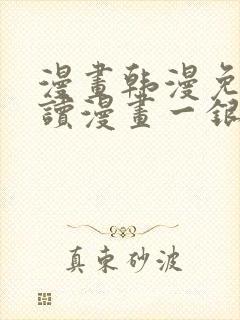 漫畫韩漫免
讀漫畫一銀
真束砂波